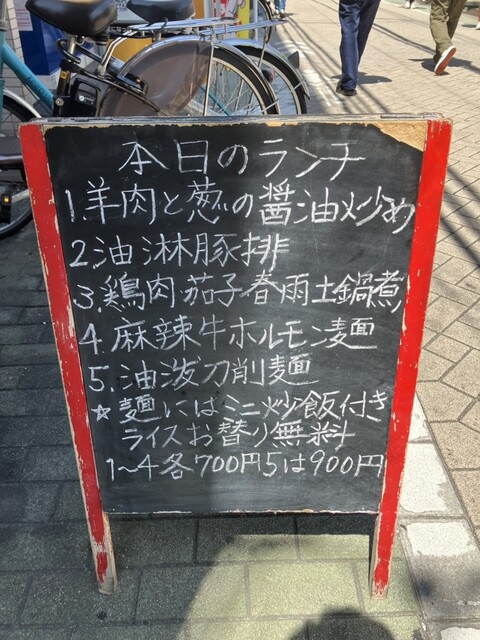 本日のランチ
1羊肉と葱の醤油炒め
2油淋豚排
3.鶏肉茄子春雨土鍋煮
4.麻辣牛ホルモン麺
5.油泼刀削麺
☆麺にはミニ炒飯付き
ライスお替り無料
1〜4各700円5は900円